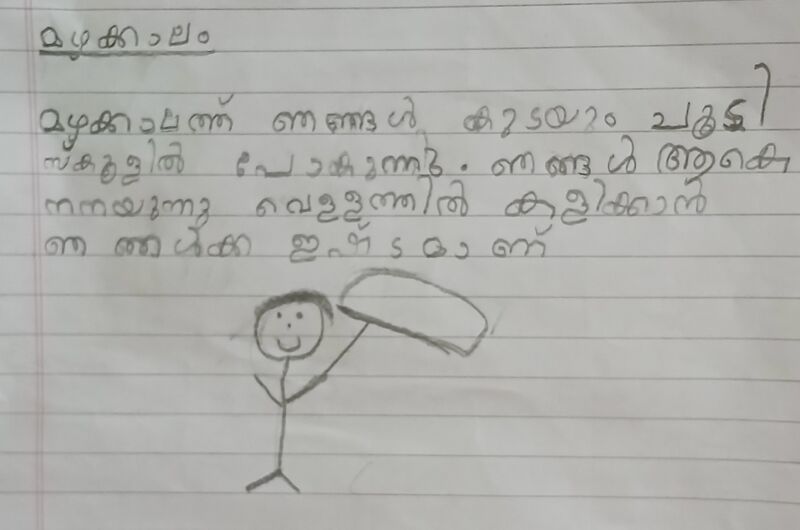 മഴക്കാലം
മഴക്കാലത്ത് ഞങ്ങൾ കുടയും ചൂടി
സ്കൂളിൽ പോകുന്നു. ഞങ്ങൾ ആകെ
നനയുന്നു വെള്ളത്തിൽ കളിക്കാൻ
ഞങ്ങൾക്ക ഇഷ്ടമാണ്